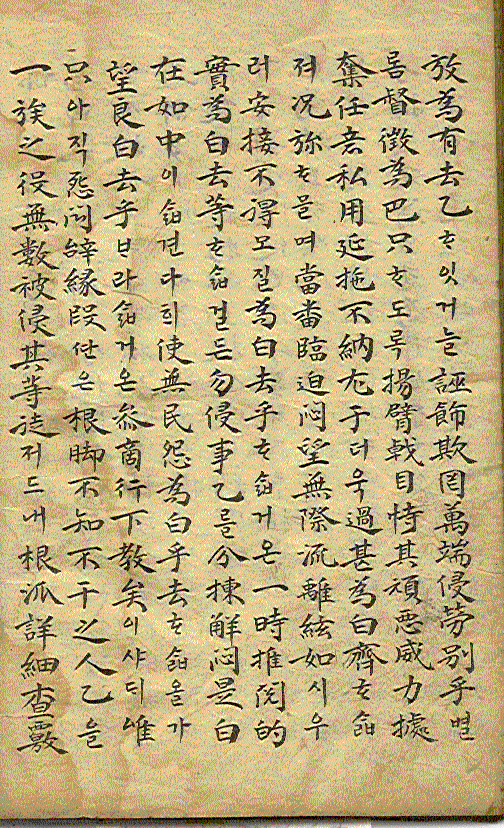 放為有去乙ᄒᆞ잇거늘誣飾欺罔萬端侵勞別乎별
督徵為巴只ᄒᆞ도록揚臂戟目恃其頑悪威力據
奪任意私用延拖不納尤于더욱過甚為白齊ᄒᆞᄉᆞᆲ
져况旀ᄒᆞ믈며當畨臨迫悶望無際流離絃如시우
러安接不得모질為白去乎ᄒᆞᄉᆞᆲ거온一時推閱的
實為白去等ᄒᆞᄉᆞᆲ거든勿侵事乙를分揀解悶是白
在如中이ᄉᆞᆲ견다희使無民怨為白乎去ᄒᆞᄉᆞᆲ올가
望良白去乎ᄇᆞ라ᄉᆞᆲ거온叅商行下教矣이샤ᄃᆡ唯
只아직怨悶辭縁段은根脚不知不干之人乙을
一族之役無數被侵其等徒저드내根派詳細査覈